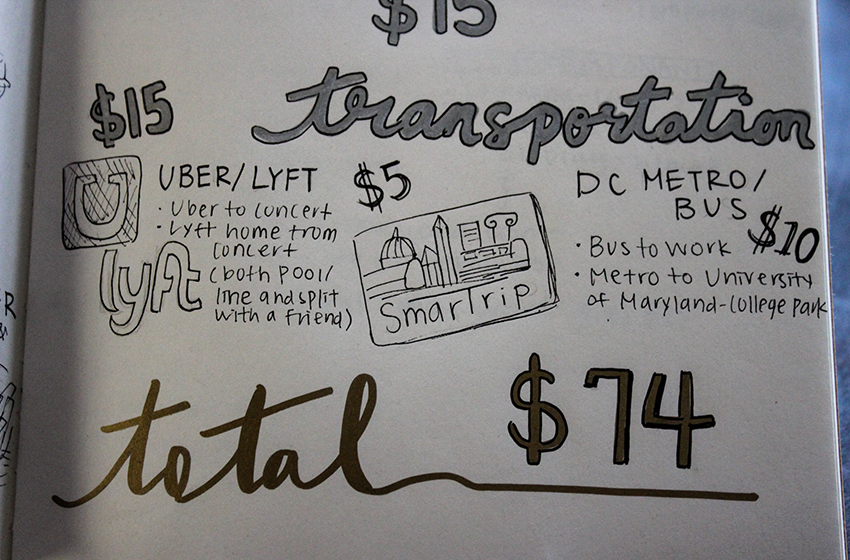 $15
$15 transportation
U
UBER/LYFT $5
· Uber to concert
· Lyft home from
concert
(both Pool/
line and split
with a friend)
lyft
SmarTrip
DC METRO/
BUS $10
· Bus to work
· Metro to University
of Maryland-College Park
total $74